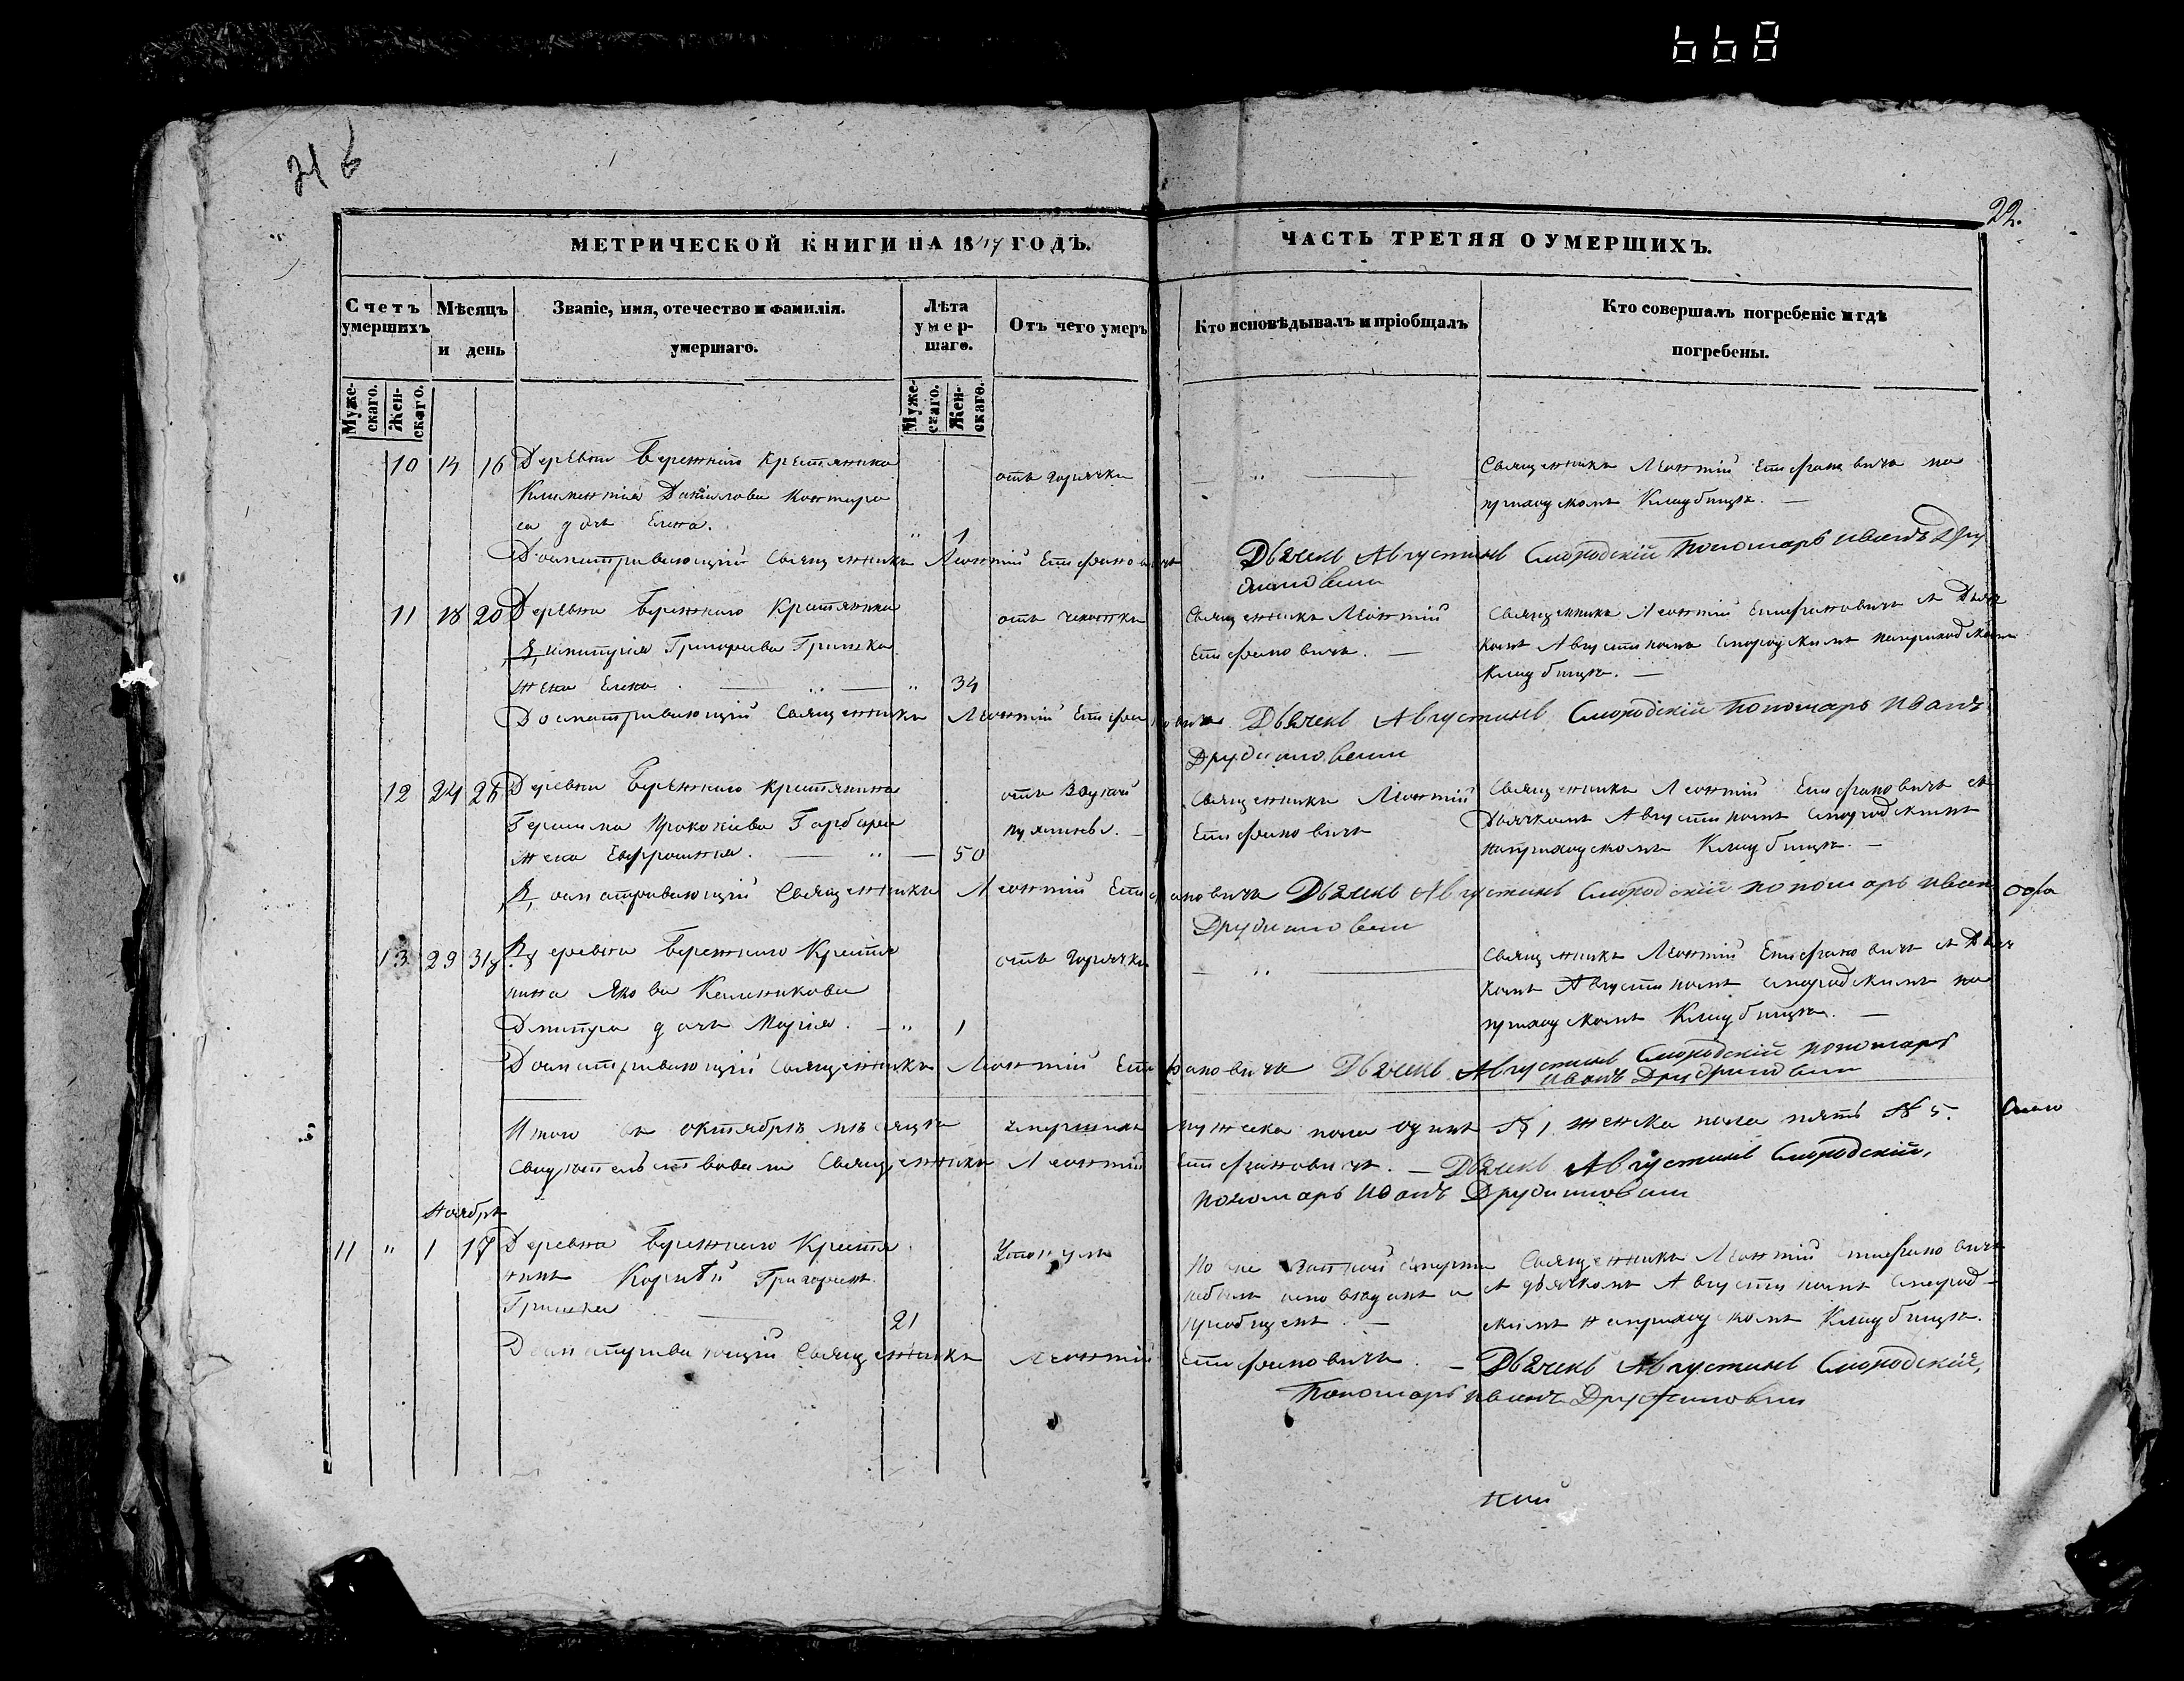 668
21 б
22.
МЕТРИЧЕСКОЙ КНИГИ НА 1847 ГОДЪ.
ЧАСТЬ ТРЕТЯЯ О УМЕРШИХЪ.
Счетъ умершихъ
Мѣсяцъ и день
Званіе, имя, отечество и фамилія. умершаго.
Лѣта умер-шаго.
Отъ чего умеръ
Кто исповѣдывалъ и пріобщалъ
Кто совершалъ погребеніе и гдѣ погребены.
Муже-скаго.
Жен-скаго.
Муже-скаго.
Жен-скаго.
10 14 16 Деревни Бережнаго Крестянина
Климентія Даніилова
дочь Елена. " 1
отъ горячки
"
Священникъ Леонтій Епифановичъ на
приходскомъ Кладбищѣ.
Досматривающій Священникъ Леонтій Епифановичъ Дьячекъ Августинъ Смородскій Пономарь Иванъ
11 18 20 Деревни Бережнаго Крестянина
Димитрія Григорьева Гришка
жена Елена " 34
отъ чахотки
Священникъ Леонтій
Епифановичъ.
Священникъ Леонтій Епифановичъ съ Дьяч
комъ Августиномъ Смородскимъ наприходскомъ
Кладбищѣ.
Досматривающій Священникъ Леонтій Епифановичъ Дьячекъ Августинъ Смородскій Пономарь Иванъ
12 24 26 Деревни Бережнаго Крестянина
Герасима Прокопіева Гарбара
жена Евфросинія. " 50
отъ
Священникъ Леонтій
Епифановичъ
Священникъ Леонтій Епифановичъ съ
Дьячкомъ Августиномъ Смородскимъ
наприходскомъ Кладбищѣ.
Досматривающій Священникъ Леонтій Епифановичъ Дьячекъ Августинъ Смородскій пономарь Иван
13 29 31 Деревни Бережнаго Крестя
нина Якова Калиникова
Дмитра дочь Марія. " 1
отъ горячки
"
Священникъ Леонтій Епифановичъ съ Дьяч
комъ Августиномъ Смородскимъ на
приходскомъ Кладбищѣ.
Досматривающій Священникъ Леонтій Епифановичъ Дьячекъ Августинъ Смородскій пономарь
Иванъ
Итого въ октябрѣ мѣсяцѣ умершихъ мужеска пола одинъ № 1 женска пола пять № 5.
Свидѣтельствовали Священникъ Леонтій Епифановичъ. Дьячекъ Августинъ Смородскій,
пономарь Иванъ
Ноябрь
11 " 1 17 Деревни Бережнаго Крестя
нинъ Корнѣй Григорьевъ
Гришка 21
Утонулъ
По внезапной смерти
небылъ исповѣданъ и
пріобщенъ.
Священникъ Леонтій Епифановичъ
съ дьячкомъ Августиномъ Смород-
скимъ наприходскомъ Кладбищѣ.
Досматривающій Священникъ Леонтій Епифановичъ. Дьячекъ Августинъ Смородскій,
Пономарь Иванъ